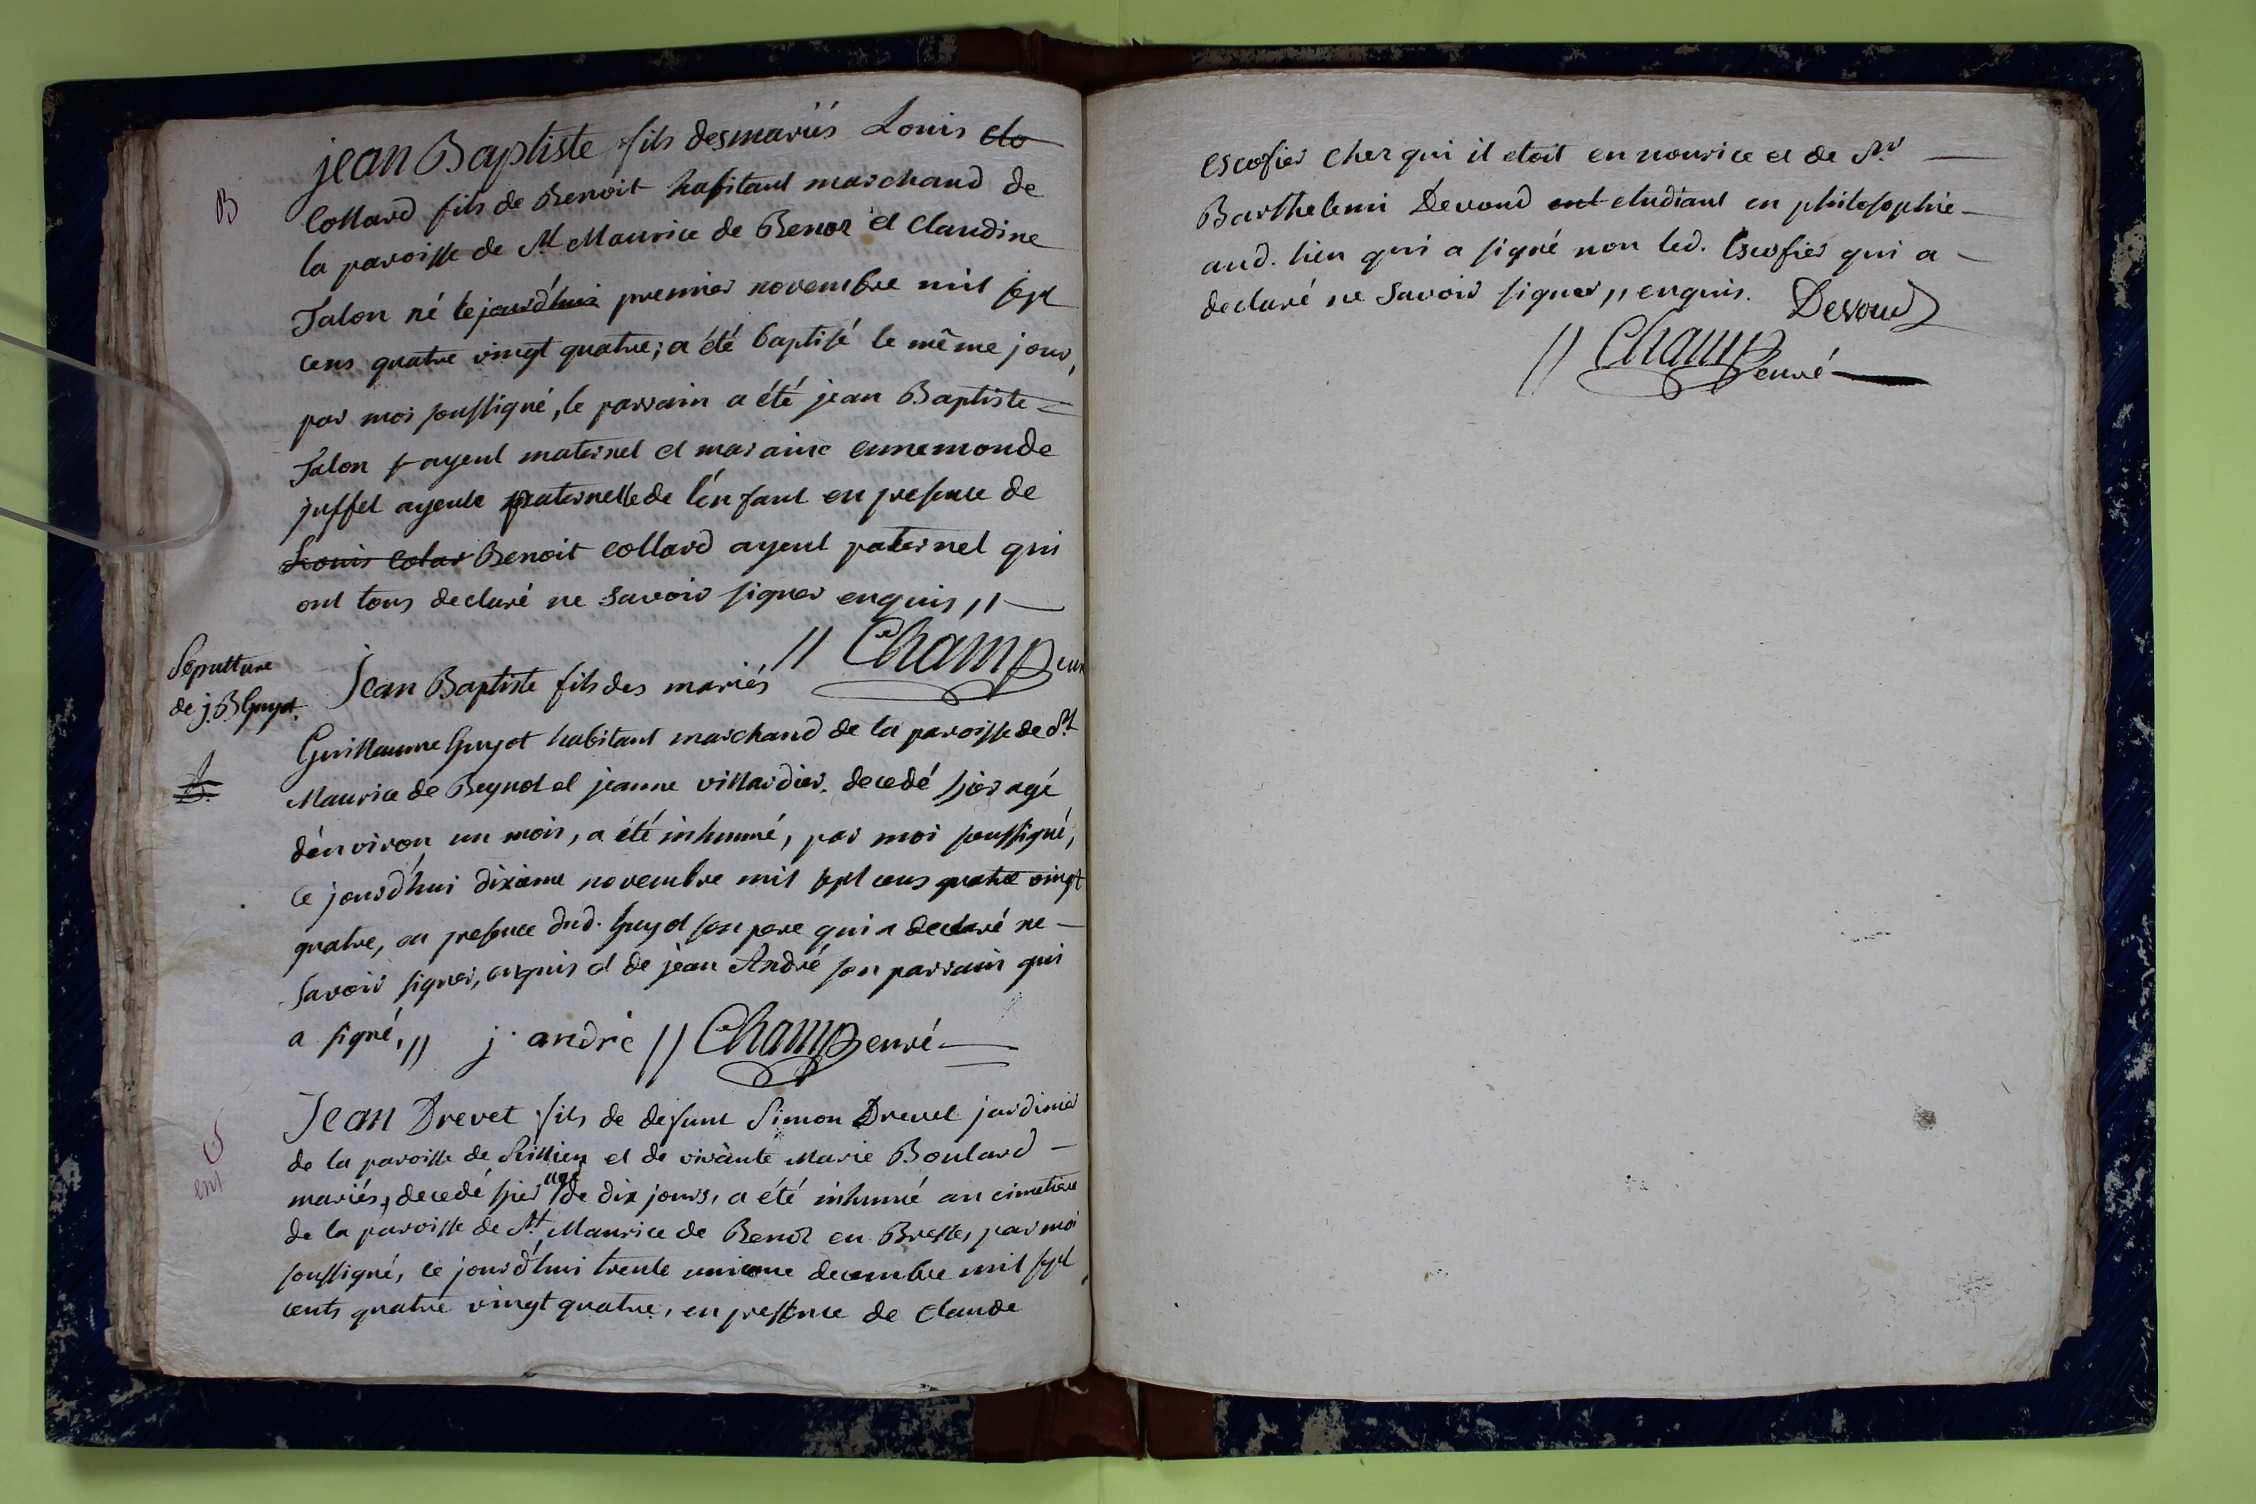 B
jean Baptiste fils des mariés Louis clo
Collard fils de Benoit habitant marchand de
la paroisse de St Maurice de Benoz et Claudine
Talon né le jourd'hui premier novembre mil sept
cens quatre vingt quatre; a été baptisé le même jour,
par moi soussigné, le parrain a été jean Baptiste
Talon ayeul maternel et maraine ennemonde
juffet ayeule paternelle de l'enfant en presence de
Louis Colar Benoit collard ayeul paternel qui
ont tous declaré ne savoir signer enquis //
// Champ curé
Sepulture
de j. B Guyot.
Jean Baptiste fils des mariés
Guillaume Guyot habitant marchand de la paroisse de St
Maurice de Beynot et jeanne villardier. decedé hier agé
d'environ un mois, a été inhumé, par moi soussigné,
ce jourd'hui dixieme novembre mil sept cens quatre vingt
quatre, en presence dud. Guyot son pere qui a declaré ne
savoir signer, enquis et de jean André son parrain qui
a signé, // j. andrié // Champ curé
Jean Drevet fils de defunt Simon Drevet jardinier
de la paroisse de Rillieu et de vivante Marie Boulard
mariés, decedé hier agé de dix jours, a été inhumé au cimetiere
de la paroisse de St. Maurice de Benoz en Bresse, par moi
soussigné, ce jourd'hui trente unieme decembre mil sept
cents quatre vingt quatre, en presence de claude
escofier chez qui il etoit en nourice et de Sr
Barthelemi Devoud ent etudiant en philosophie
aud. lieu qui a signé non led. Escofier qui a
declaré ne savoir signer // enquis. Devoud
// Champ curé